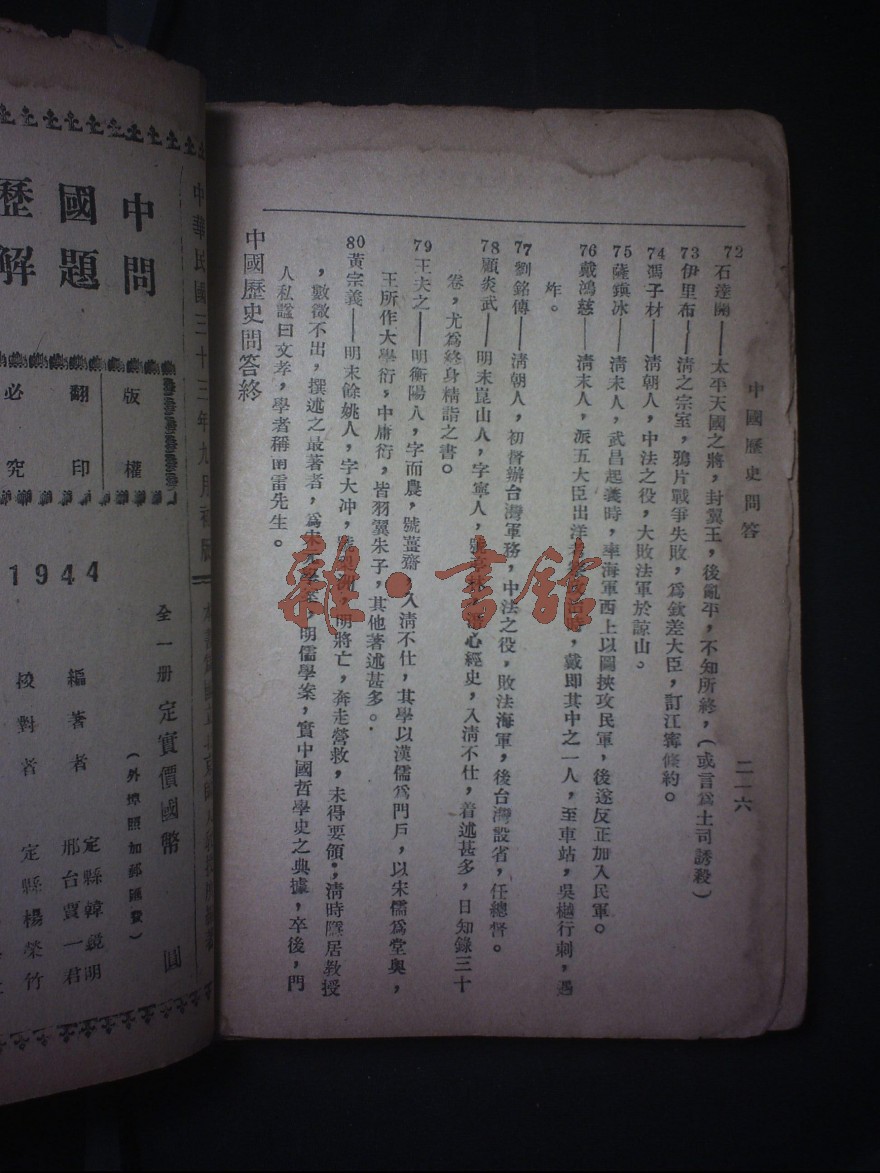 中國歷史問答
二一六
72石達開——太平天國之將，封翼王，後亂平，不知所終，（或言爲土司誘殺）
73伊里布——淸之宗室，鴉片戰爭失敗，爲欽差大臣，訂江寗條約。
74馮子材——淸朝人，中法之役，大敗法軍於諒山。
75薩鎭冰——淸末人，武昌起義時，率海軍西上以圖挾攻民軍，後遂反正加入民軍。
76戴鴻慈——淸末人，派五大臣出洋，戴卽其中之一人，至車站，吳樾行刺，遇
炸。
77劉銘傳——淸朝人，初督辦台灣軍務，中法之役，敗法海軍，後台灣設省，任總督。
78顧炎武——明末崑山人，字寧人，心經史，入淸不仕，着述甚多，日知錄三十
卷，尤爲終身精詣之書。
79王夫之——明衡陽人，字而農，號薑齋，入淸不仕，其學以漢儒爲門戶，以宋儒爲堂奧，
王所作大學衍，中庸衍，皆羽翼朱子，其他著述甚多。
80黃宗義——明末餘姚人，字大冲，明將亡，奔走營救，未得要領，淸時隱居教授
，數徵不出，撰述之最著者，爲宋元學案，明儒學案，實中國哲學史之典據，卒後，門
人私諡曰文孝，學者稱南雷先生。
中國歷史問答終
雜·書館
中華民國三十三年九月初版
中國歷
問題解
版權
翻印
必究
1944
全一册 定實價國幣 圓
（外埠照加郵匯費）
編著者 定縣韓鏡明
邢台賈一君
校對者 定縣楊榮竹